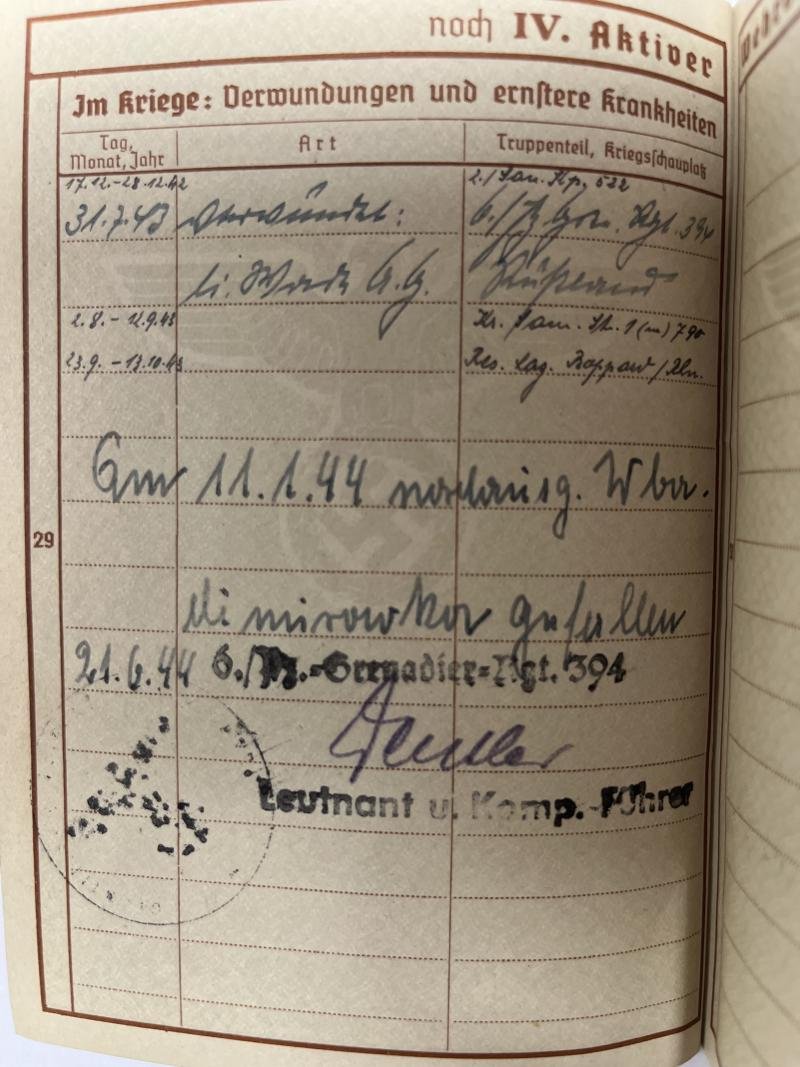 noch IV. Aktiver
Im Kriege: Verwundungen und ernstere Krankheiten
Tag, Monat, Jahr
Art
Truppenteil, Kriegsschauplatz
17.12.-28.12.42 2./San. Kp. 522
31.7.43 Verwundet: 6./Pz. Gren. Rgt. 394
li. Wade A.G. Rußland
2.8. - 12.9.43 Kr. Sam. St. 1 (m) 790
23.9. - 13.10.43 Res. Laz. Boppard / Rhn.
Am 11.1.44 nordausg. Wba.
29
gefallen
21.6.44 6./Pz.-Grenadier-Rgt. 394
Leutnant u. Komp.-Führer